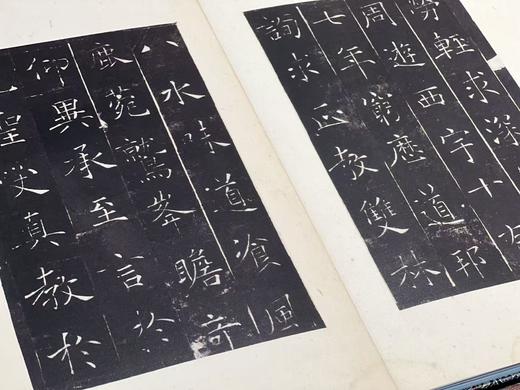 勞輕求深
周遊西宇十有
七年窮歷道邦
詢求正教雙林
八水味道飡風
鹿菀鷲峯瞻奇
仰異承至言於
聖受真教於